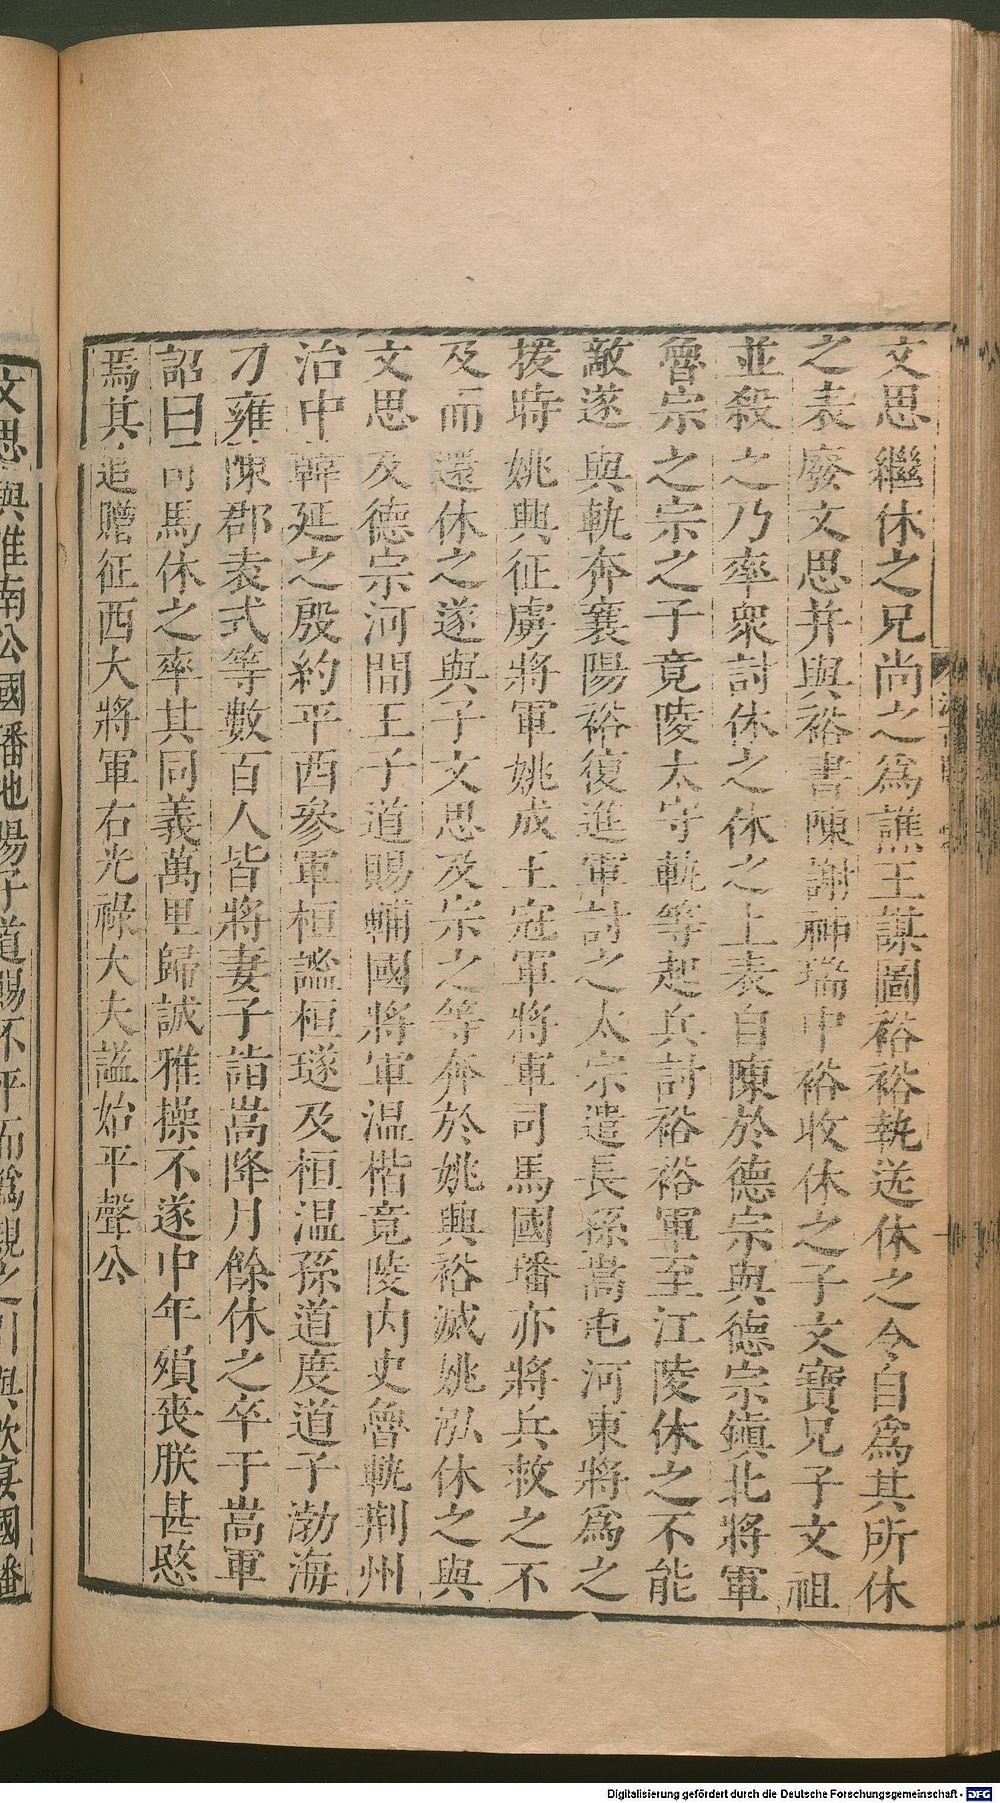 文思繼休之兄尚之爲譙王謀圖裕裕執送休之令自爲其所休
之表廢文思并與裕書陳謝神瑞中裕收休之子文寶兄子文祖
並殺之乃率衆討休之休之上表自陳於德宗與德宗鎮北將軍
魯宗之宗之子竟陵太守軌等起兵討裕裕軍至江陵休之不能
敵遂與軌奔襄陽裕復進軍討之太宗遣長孫嵩屯河東將爲之
援時姚興征虜將軍姚成王冠軍將軍司馬國璠亦將兵救之不
及而還休之遂與子文思及宗之等奔於姚興裕滅姚泓休之與
文思及德宗河間王子道賜輔國將軍温楷竟陵内史魯軌荆州
治中韓延之殷約平西參軍桓謐桓璲及桓温孫道度道子渤海
刁雍陳郡袁式等數百人皆將妻子詣嵩降月餘休之卒于嵩軍
詔曰司馬休之率其同義萬里歸誠雅操不遂中年殞喪朕甚愍
焉其追贈征西大將軍右光祿大夫謚始平聲公
文思與淮南公國璠池陽子道賜不平而僞親之引與飲宴國璠
Digitalisierung gefördert durch die Deutsche Forschungsgemeinschaft - DFG